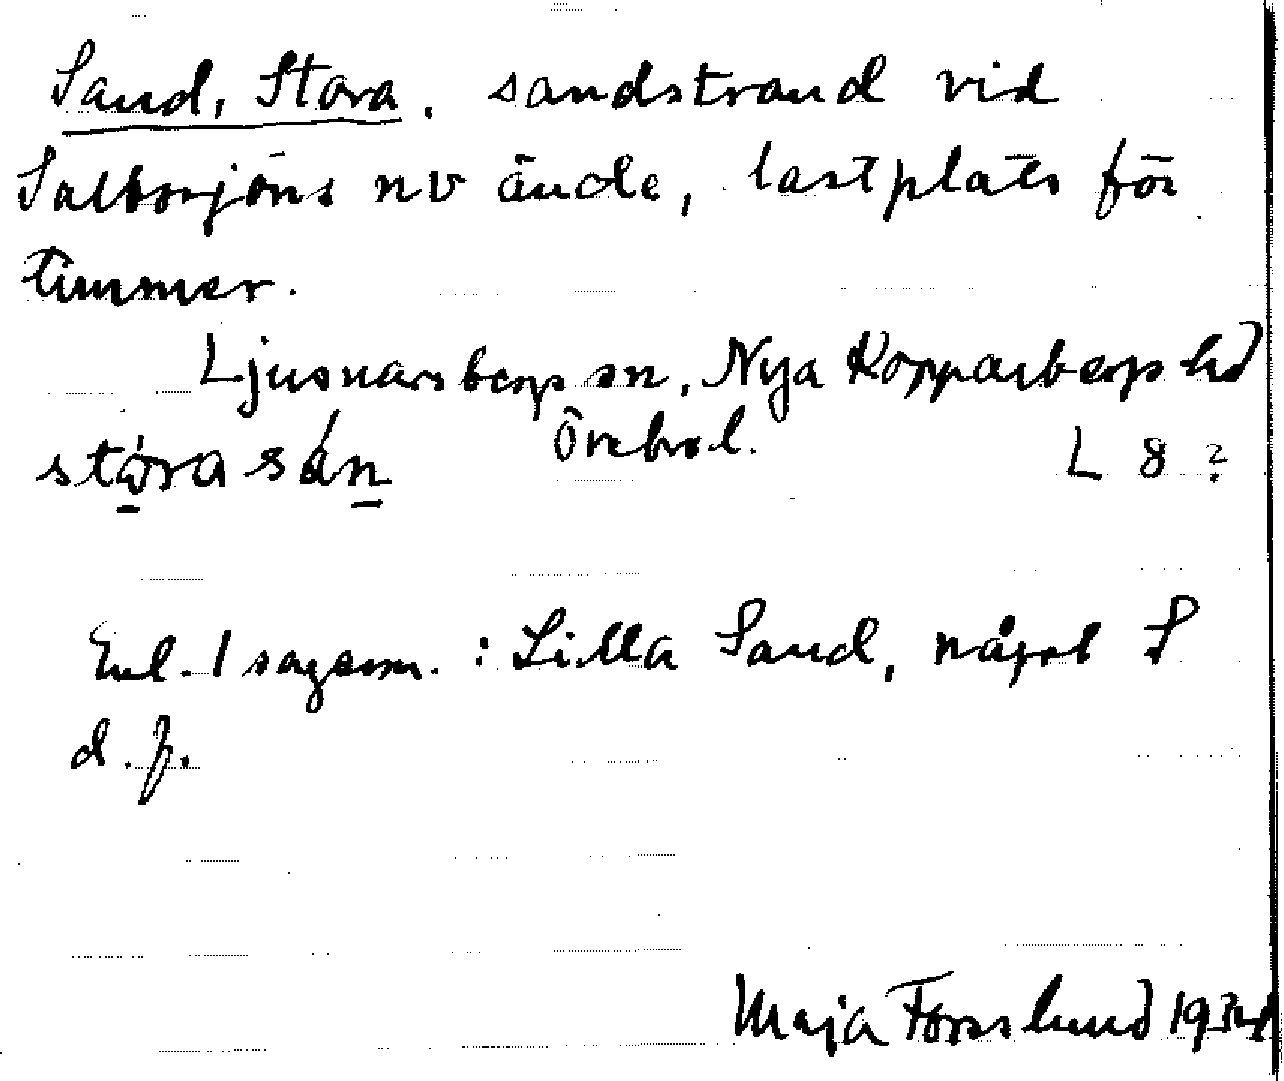 Sand, Stora. sandstrand vid
Salbosjöns nv ände, lastplats för
timmer.
Ljusnarsbergs sn, Nya Kopparbergs hd
Örebro l.
stora sán
L 8 ?
Enl. 1 sagesm. : Lilla Sand, något S
d. f.
Maja Forslund 1934